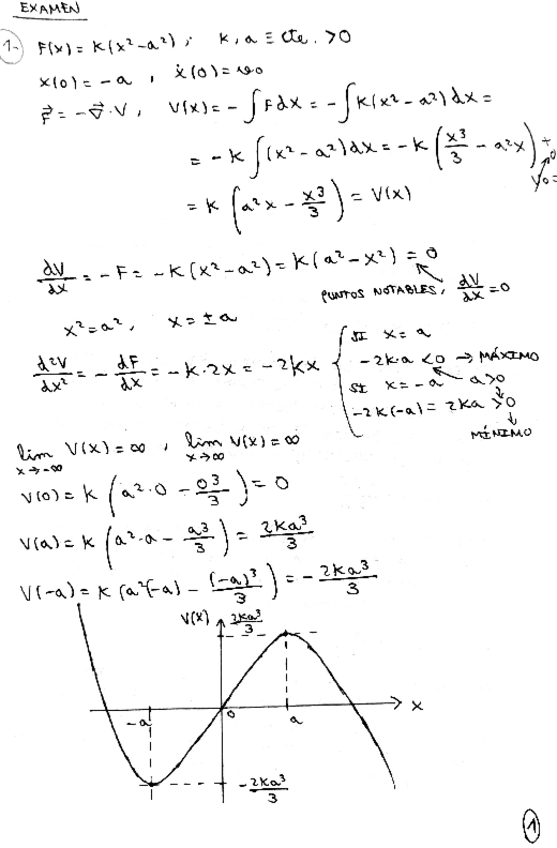 EXAMEN
1- F(x) = K(x²-a²); K, a ≡ cte. >0
x(0) = -a, ẋ(0) = v0
F⃗ = -∇⃗·V, V(x) = -∫Fdx = -∫K(x²-a²)dx =
= -K∫(x²-a²)dx = -K(x³/3 - a²x) + V0=0
= K(a²x - x³/3) = V(x)
dV/dx = -F = -K(x²-a²) = K(a²-x²) = 0
PUNTOS NOTABLES, dV/dx = 0
x² = a², x = ±a
d²V/dx² = -dF/dx = -K·2x = -2Kx
SI x = a
-2K·a <0 → MÁXIMO
SI x = -a a>0
-2K(-a) = 2Ka >0
MÍNIMO
lim x→-∞ V(x) = ∞, lim x→∞ V(x) = ∞
V(0) = K(a²·0 - 0³/3) = 0
V(a) = K(a²·a - a³/3) = 2Ka³/3
V(-a) = K(a²(-a) - (-a)³/3) = -2Ka³/3
V(x) 2Ka³/3
-a 0 a x
-2Ka³/3
1